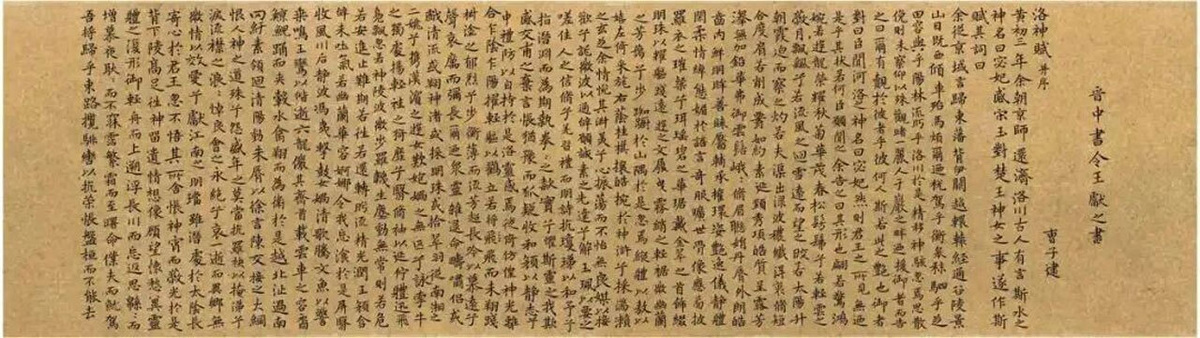 晉中書令王獻之書
曹子建
洛神賦 并序
黃初三年余朝京師還濟洛川古人有言斯水之
神名曰宓妃感宋玉對楚王神女之事遂作斯
賦其詞曰
余從京域言歸東藩背伊闕越轘轅經通谷陵景
山日既西傾車殆馬煩爾迺稅駕乎蘅皋秣駟乎芝
田容與乎陽林流眄乎洛川於是精移神駭忽焉思散
俛則未察仰以殊觀睹一麗人于巖之畔迺援御者而告
之曰爾有覿於彼者乎彼何人斯若此之艷也御者
對曰臣聞河洛之神名曰宓妃然則君王之所見無迺
是乎其狀若何臣願聞之余告之曰其形也翩若驚鴻
婉若遊龍榮耀秋菊華茂春松髣髴兮若輕雲之
蔽月飄飄兮若流風之迴雪遠而望之皎若太陽升
朝霞迫而察之灼若芙蕖出淥波穠纖得衷脩短
合度肩若削成腰如約素延頸秀項皓質呈露芳
澤無加鉛華弗御雲髻峨峨脩眉聯娟丹脣外朗皓
齒內鮮明眸善睞靨輔承權瓌姿艷逸儀靜體
閑柔情綽態媚於語言奇服曠世骨像應圖披
羅衣之璀粲兮珥瑤碧之華琚戴金翠之首飾綴
明珠以耀軀踐遠遊之文履曳霧綃之輕裾微幽蘭
之芳藹兮步踟躕於山隅於是忽焉縱體以遨以
嬉左倚采旄右蔭桂旗攘皓腕於神滸兮采湍瀨
之玄芝余情悅其淑美兮心振蕩而不怡無良媒以接
歡兮託微波以通辭願誠素之先達兮解玉珮以要之
嗟佳人之信脩兮羌習禮而明詩抗瓊珶以和予兮
指潛淵而為期執拳拳之款實兮懼斯靈之我欺
感交甫之棄言悵猶豫而狐疑收和顏以靜志兮
申禮防以自持於是洛靈感焉徙倚仿偟神光離
合乍陰乍陽擢輕軀以鶴立若將飛而未翔踐
椒塗之郁烈兮步蘅薄而流芳超長吟以慕遠兮
聲哀厲而彌長爾迺眾靈雜遝命疇嘯侶或
戲清流或翔神渚或採明珠或拾翠羽從南湘之
二妃攜漢濱之遊女歎匏媧之無匹兮詠牽牛
之獨處揚輕袿之猗靡兮翳脩袖以延佇體迅飛
鳧飄忽若神陵波微步羅襪生塵動無常則若危
若安進止難期若往若還轉眄流精光潤玉顏含
辭未吐氣若幽蘭華容婀娜令我忘飡於是屏翳
收風川后靜波馮夷擊鼓女媧清歌騰文魚以警
乘鳴玉鸞以偕逝六龍儼其齊首載雲車之容裔
鯨鯢踊而夾轂水禽翔而為衛於是越北沚過南
岡紆素領迴清陽動朱脣以徐言陳交接之大綱
恨人神之道殊兮怨盛年之莫當抗羅袂以掩涕兮
流襟之浪浪悼良會之永絕兮哀一逝而異鄉無
微情以效愛兮獻江南之明璫雖潛處於太陰長
寄心於君王忽不悟其所舍悵神宵而蔽光於是
背下陵高足往神留遺情想像顧望懷愁冀靈
體之復形御輕舟而上遡浮長川而忘返思綿綿而
增慕夜耿耿而不寐霑繁霜而至曙命僕夫而就駕
吾將歸乎東路攬騑轡以抗策悵盤桓而不能去